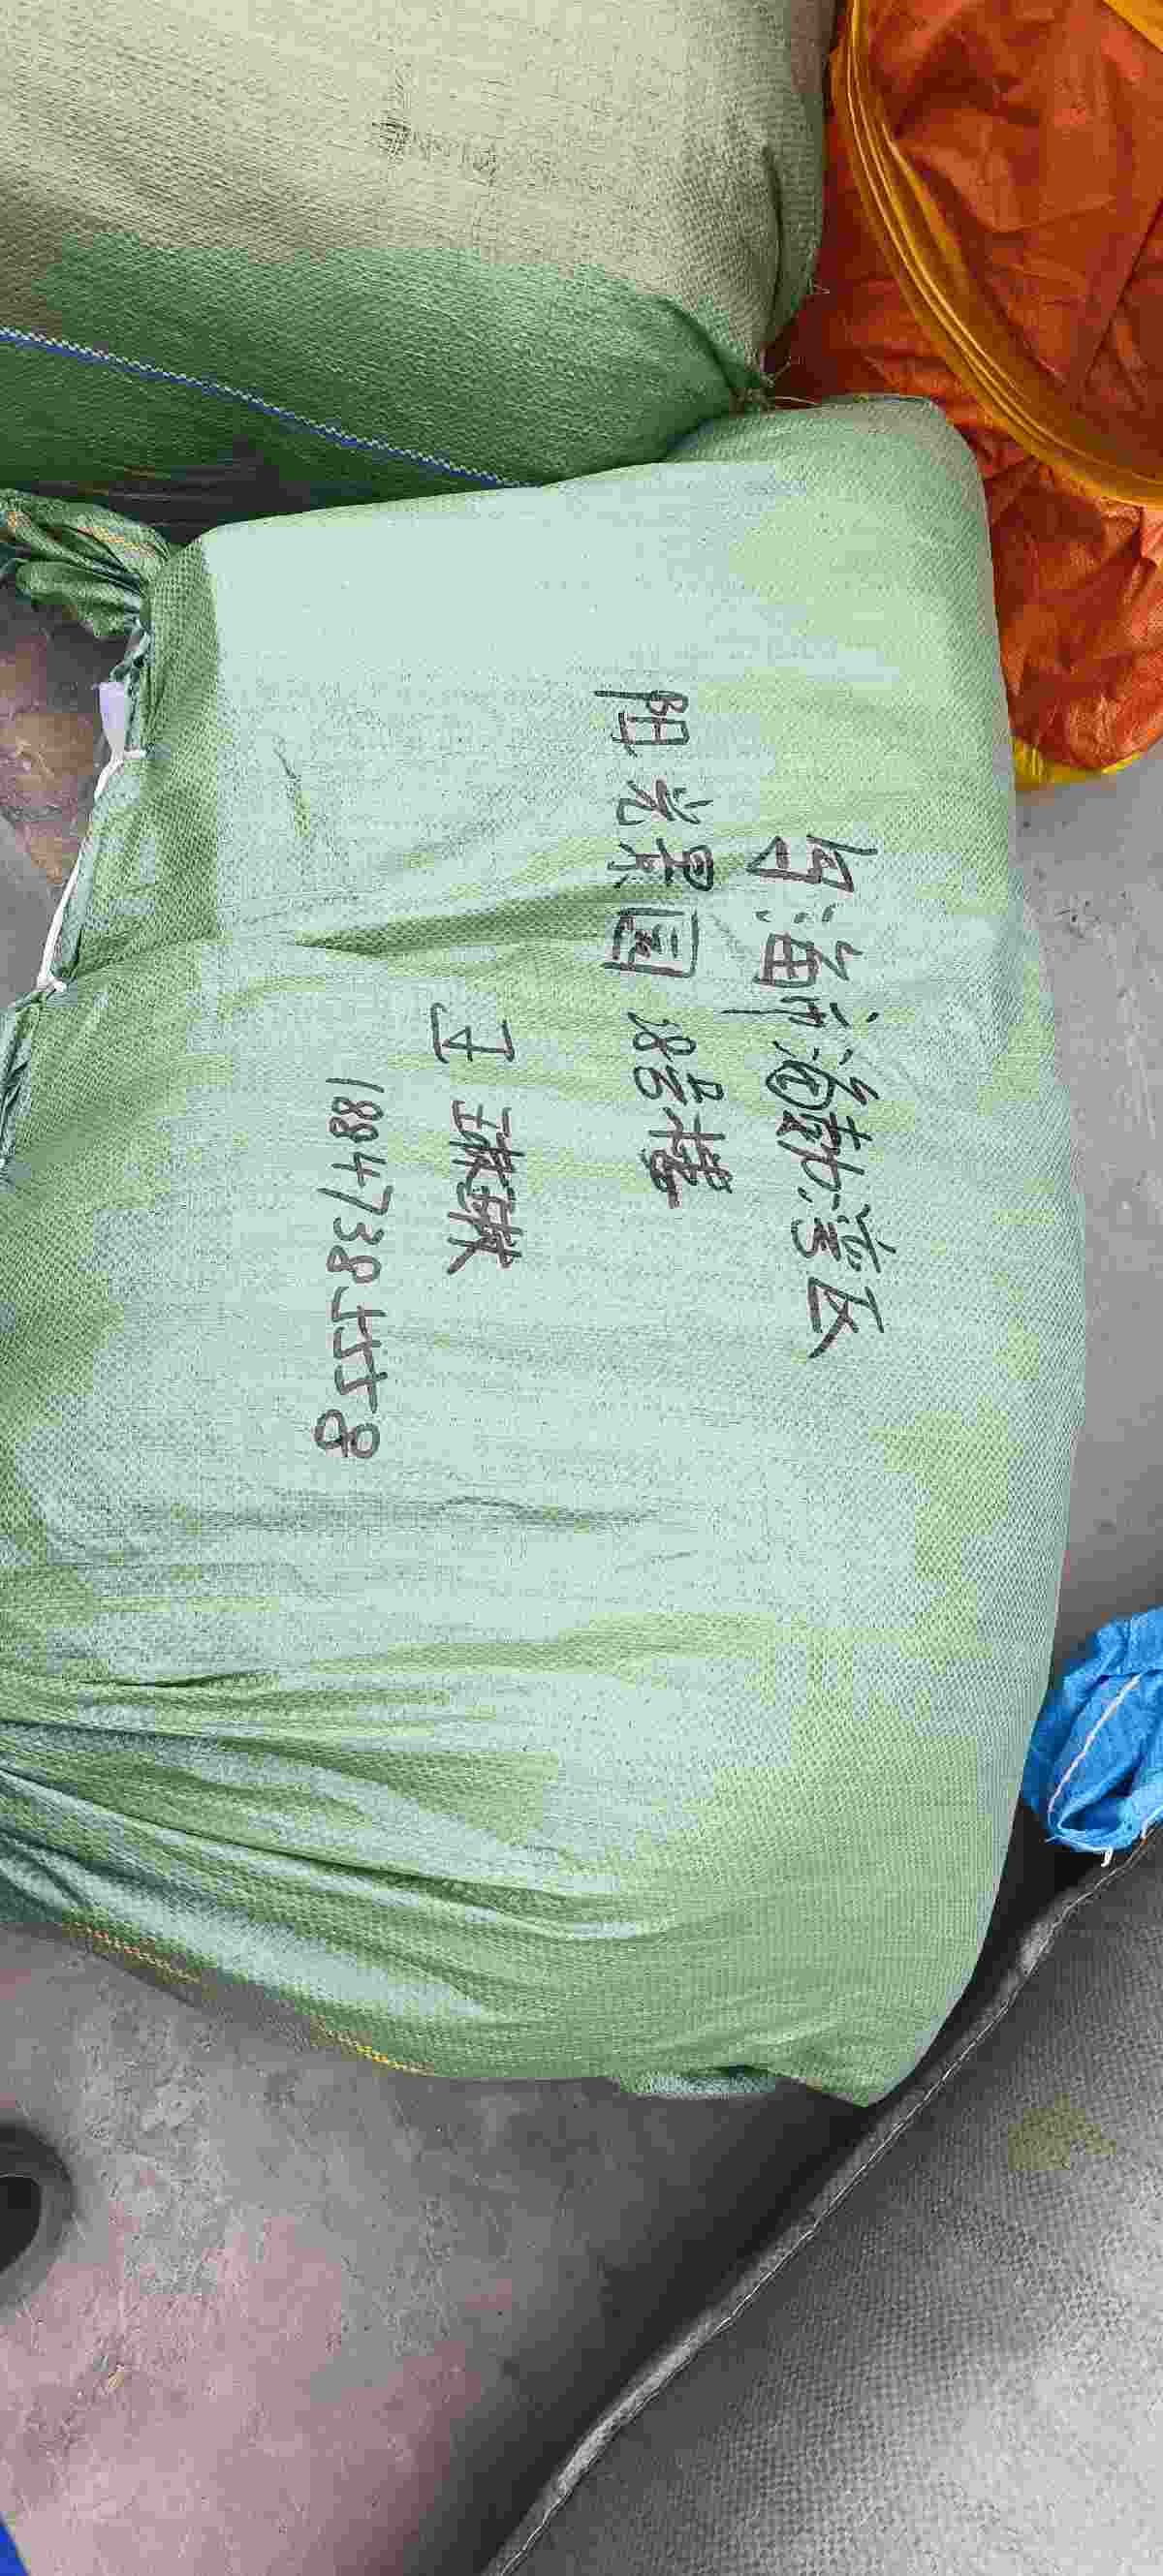 乌海市海勃湾区
阳光景园28号楼
王琪琪
18847385558